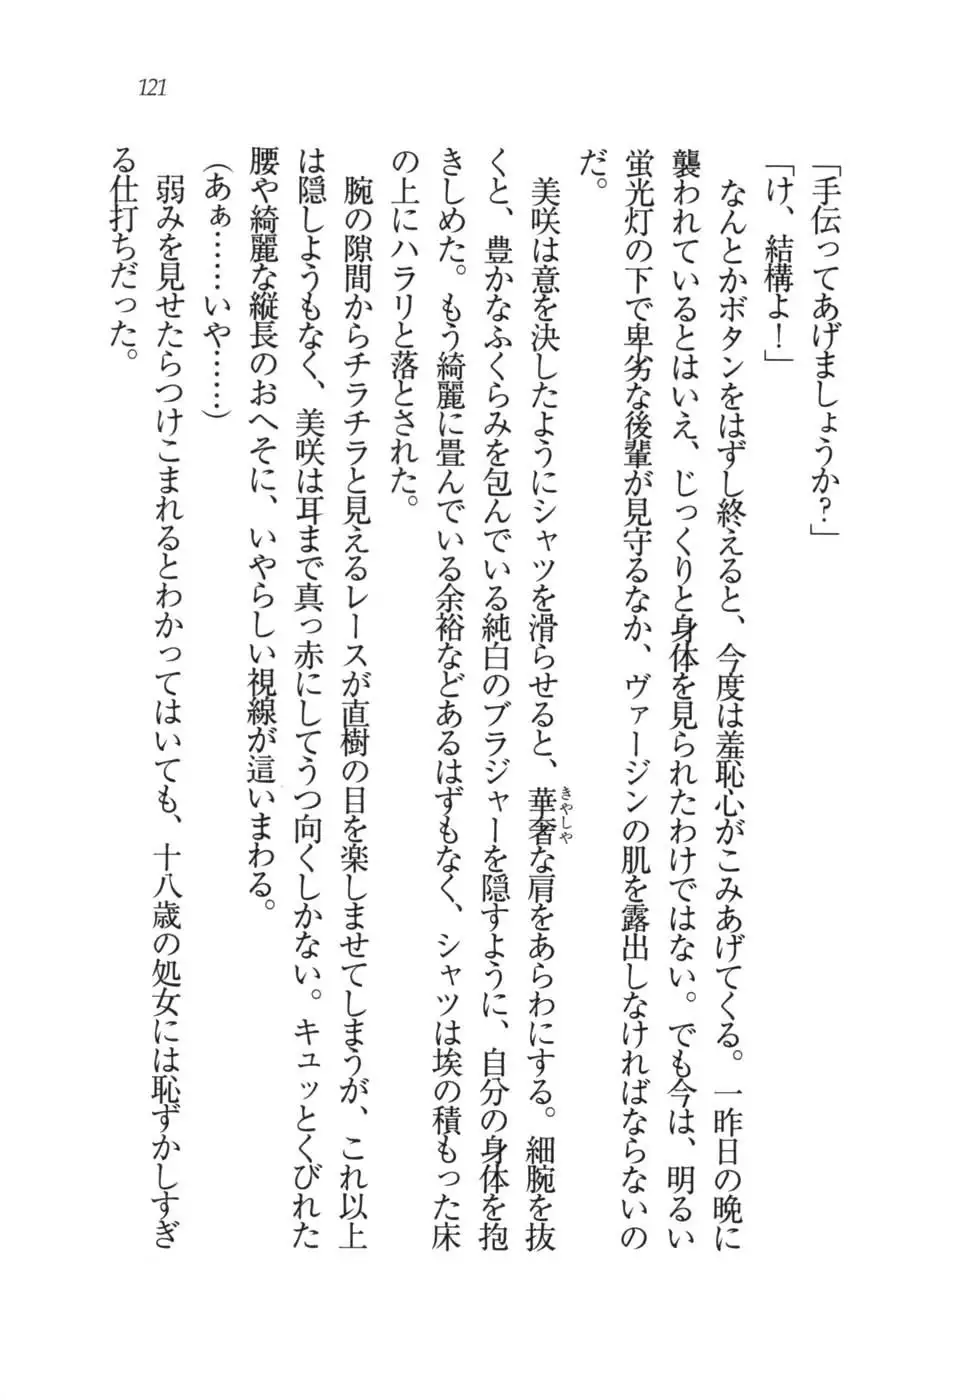 121
「手伝ってあげましょうか?」
「け、結構よ!」
なんとかボタンをはずし終えると、今度は羞恥心がこみあげてくる。一昨日の晩に
襲われているとはいえ、じっくりと身体を見られたわけではない。でも今は、明るい
蛍光灯の下で卑劣な後輩が見守るなか、ヴァージンの肌を露出しなければならないの
だ。
美咲は意を決したようにシャツを滑らせると、華奢きやしやな肩をあらわにする。細腕を抜
くと、豊かなふくらみを包んでいる純白のブラジャーを隠すように、自分の身体を抱
きしめた。もう綺麗に畳んでいる余裕などあるはずもなく、シャツは埃の積もった床
の上にハラリと落とされた。
腕の隙間からチラチラと見えるレースが直樹の目を楽しませてしまうが、これ以上
は隠しようもなく、美咲は耳まで真っ赤にしてうつ向くしかない。キュッとくびれた
腰や綺麗な縦長のおへそに、いやらしい視線が這いまわる。
(あぁ……いや……)
弱みを見せたらつけこまれるとわかってはいても、十八歳の処女には恥ずかしすぎ
る仕打ちだった。